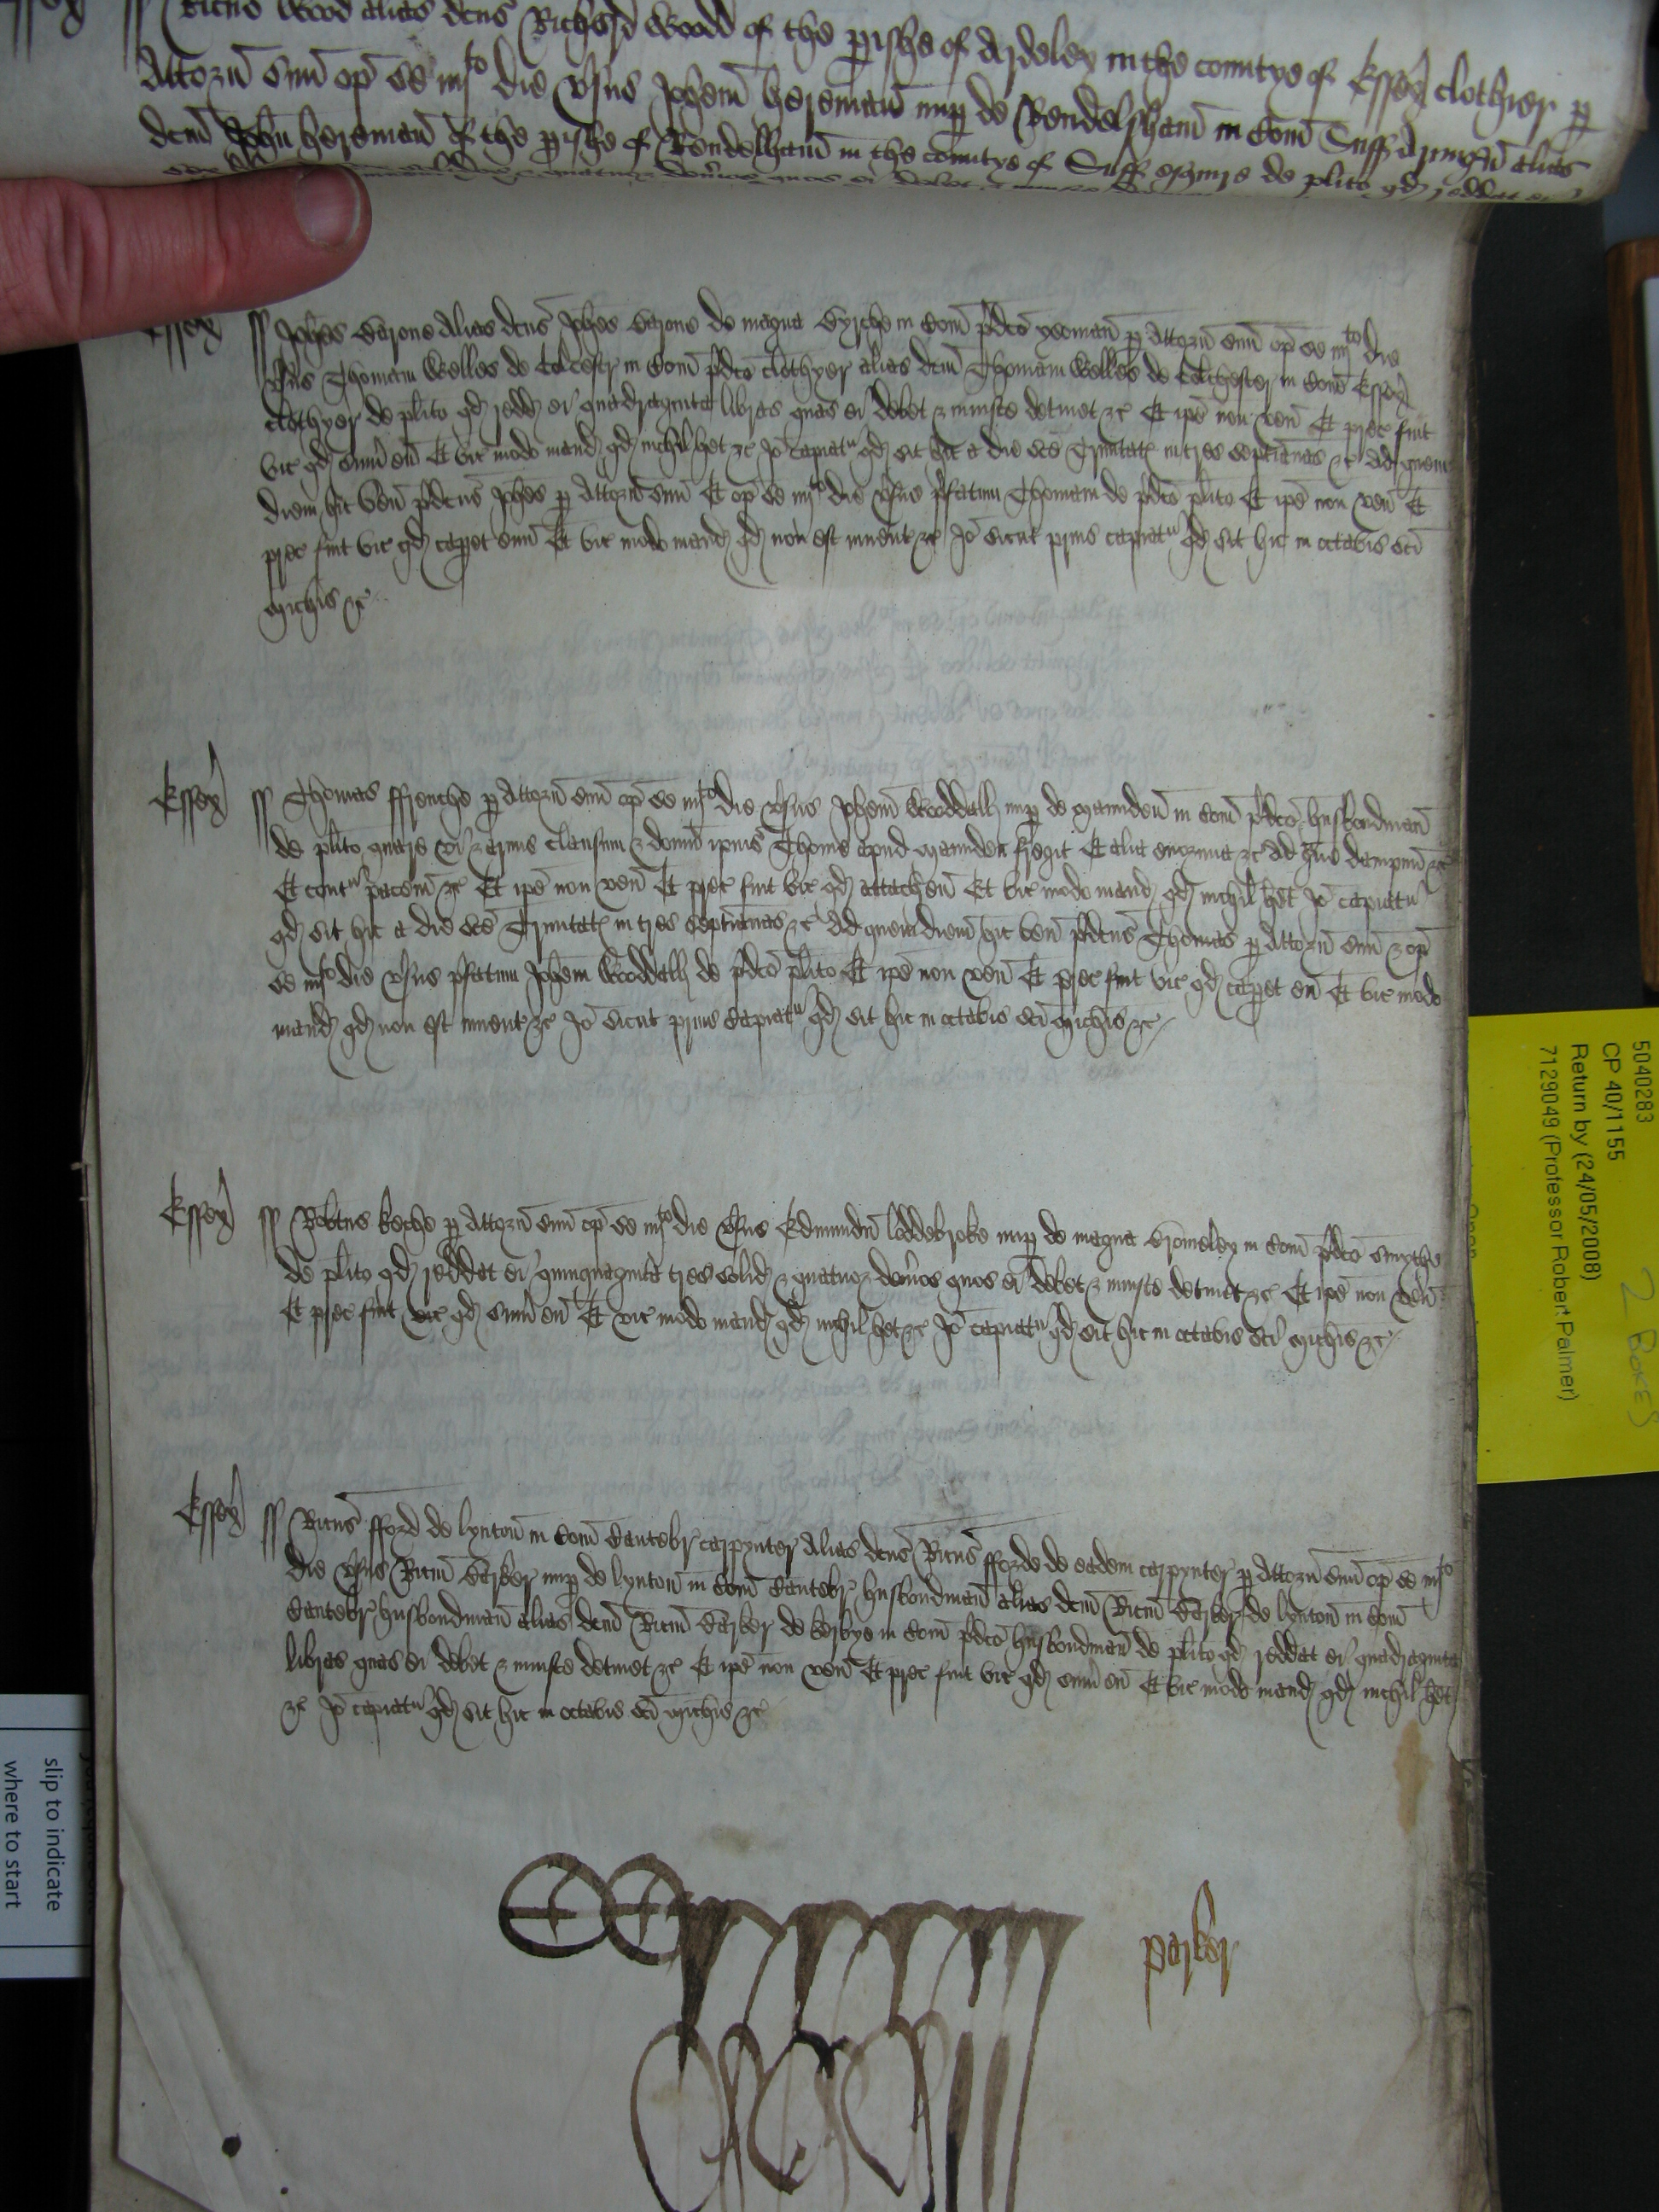 Ricus Wood alias dcus Richerd Wodd of the pishe of Ardeley in the comtye of Essex clothier p
Attorn suu op se iiijto die vsus Johem hereman nup de Rendelsham in Com Suff alias
dcm John hereman of the pishe of Rendelsham in the comtye of Suff de plito qd reddat ei
Essex Johes Barons alias dcus Johes Barons de magna Byrche in Com pdco yeoman p Attorn suu op se iiijto die
vsus Thomam Welles de Colcestr in Com pdco clothyer alias dcm Thomam Welles de Colchester in Com Essex
clothyer de plito qd redd ei quadraginta libras quas ei debet & iniuste detinet &c Et ipe non ven Et prec fuit
vic qd sum eu Et vic modo mand qd nichil het &c Io capiatr qd sit hic a die sce Trinitatis in tres septianas &c Ad quem
diem hic ven pdcus Johes p Attorn suu Et op se iiijto die vsus pfatum Thomam de pdco plito Et ipe non ven Et
prec fuit vic qd capet eum Et vic modo mand qd non est inuent &c Io sicut prius capiatr qd sit hic in octabis sci
Michis &c
Essex Thomas ffrenche p Attorn suu op se iiijto die vsus Johem Wooddall nup de Mannden in Com pdco husbondman
de plito quare vi & armis clausum & domu ipius Thome apud Mannden fregit Et alia enormia &c ad graue dampnu &c
Et contra pacem &c Et ipe non ven Et prec fuit vic qd attach eu Et vic modo mand qd nichil het Io capiatr
qd sit hic a die sce Trinitatis in tres septianas &c Ad quem diem hic ven pdcus Thomas p Attorn suu & op
se iiijto die vsus pfatum Johem Wooddall de pdco plito Et ipe non ven Et prec fuit vic qd capet eu Et vic modo
mand qd non est inuent &c Io sicut prius capiatr qd sit hic in octabis sci Michis &c
Essex Robtus Keche p Attorn suu op se iiijto die vsus Edmundu loddebroke nup de magna Bromeley in Com pdco Smythe
de plito qd reddat ei quinquaginta tres solid & quatuor denios quos ei debet & iniuste detinet &c Et ipe non ven
Et prec fuit vic qd sum eu Et vic modo mand qd nichil het &c Io capiatr qd sit hic in octabis sci Michis &c
Essex Ricus fford de lynton in Com Cantebr carpynter alias dcus Ricus fforde de eadem carpynter p Attorn suu op se iiijto
die vsus Ricm Barker nup de lynton in Com Cantebr husbondman alias dcm Ricm Barker de lynton in Com
Cantebr husbondman alias dcm Ricm Barker de in Com pdco husbondman de plito qd reddat ei quadraginta
libras quas ei debet & iniuste detinet &c Et ipe non ven Et prec fuit vic qd sum eu Et vic modo mand qd nichil het
&c Io capiatr qd sit hic in octabis sci Michis &c
parker
5040283
CP 40/1155
Return by (24/05/2008)
7129049 (Professor Robert Palmer)
2 Boxes
slip to indicate
where to start